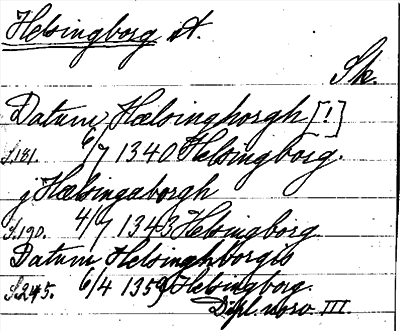 Helsingborg st.
Sk.
Datum Hælsinghorgh [!]
S.181. 6/7 1340 Helsingborg.
j Hælsingaborgh
S.190. 4/7 1343 Helsingborg
Datum Helsinghborgis
S.245. 6/4 1359 Helsingborg.
Dipl. norv. III.